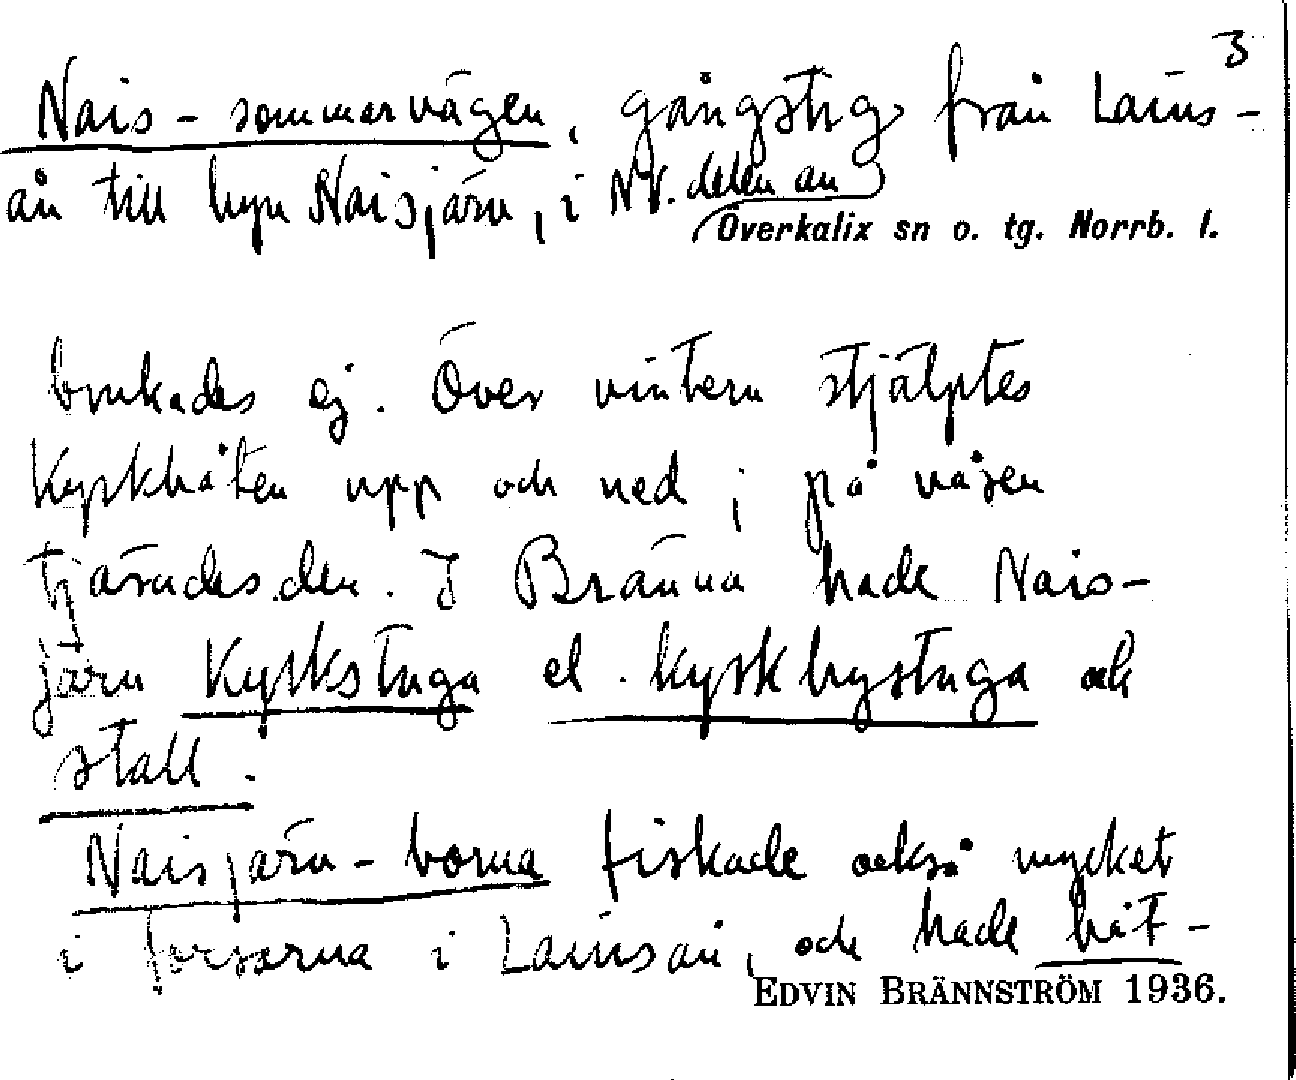 3
Nais-sommarvägen, gångstig från Läins-
ån till byn Naisjärv, i NV. delen av
Överkalix sn o. tg. Norrb. l.
brukades ej. Över vintern stjälptes
Kyrkbåten upp och ned; på våren
tjärades den. I Bränna hade Nais-
järv Kyrkstuga el. kyrkbystuga och
stall.
Naisjärv-borna fiskade också mycket
i forsarna i Läinsån, och hade båt-
EDVIN BRÄNNSTRÖM 1936.